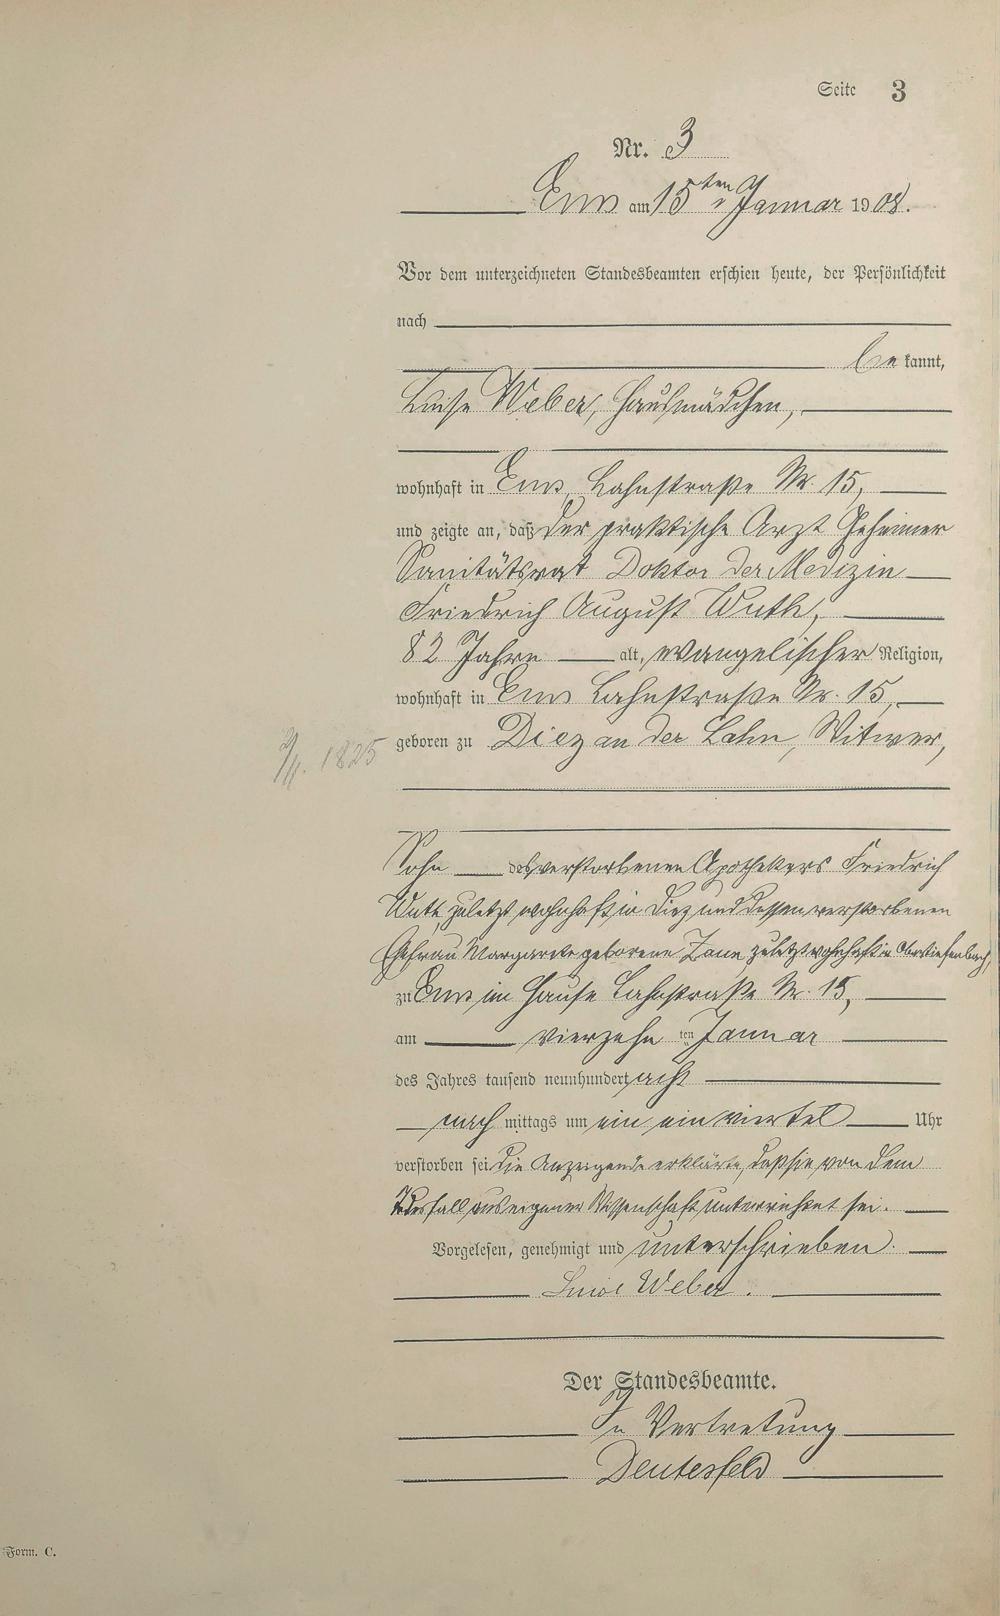 Seite 3
Nr. 3
Ems am 15ten Januar 1908.
Vor dem unterzeichneten Standesbeamten erschien heute, der Persönlichkeit
nach
be kannt,
Luise Weber, Hausmädchen,
wohnhaft in Ems, Lahnstraße Nr. 15,
und zeigte an, daß der praktische Arzt Geheimer
Sanitätsrat Doktor der Medizin
Friedrich August Wuth,
82 Jahre alt, evangelischer Religion,
wohnhaft in Ems Lahnstraße Nr. 15,
2/11. 1825
geboren zu Diez an der Lahn, Witwer,
Sohn des verstorbenen Apothekers Friedrich
Wuth, zuletzt wohnhaft in Diez und dessen verstorbenen
Ehefrau Margarete geborene zuletzt wohnhaft in Obertiefenbach,
zu Ems im Hause Lahnstraße Nr. 15,
am vierzehnten Januar
des Jahres tausend neunhundert acht
nach mittags um ein ein viertel Uhr
verstorben sei die Anzeigende erklärte, daß sie von dem
Todesfall aus eigener Wissenschaft unterrichtet sei.
Vorgelesen, genehmigt und unterschrieben.
Luise Weber.
Der Standesbeamte.
In Vertretung
Deutesfeld
Form. C.